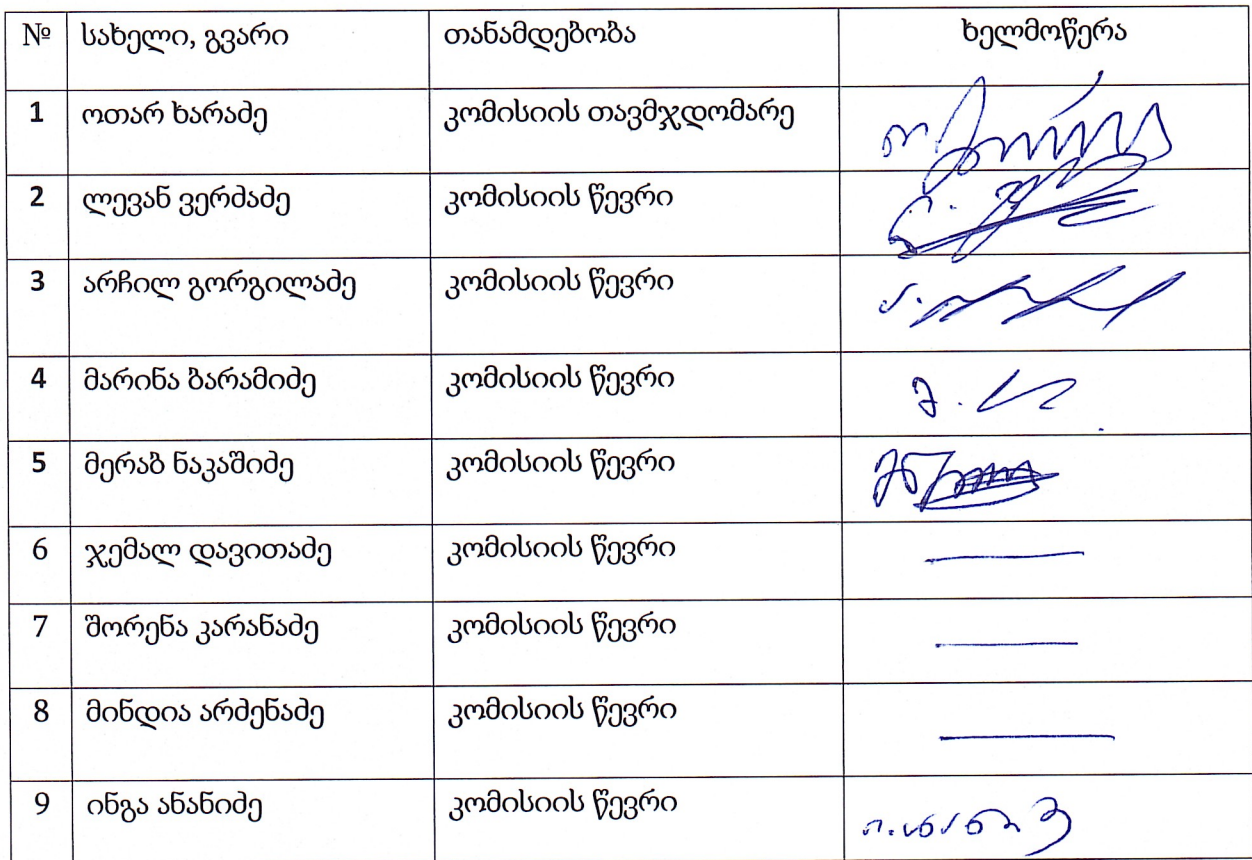 № სახელი, გვარი თანამდებობა ხელმოწერა
1 ოთარ ხარაძე კომისიის თავმჯდომარე
2 ლევან ვერძაძე კომისიის წევრი
3 არჩილ გორგილაძე კომისიის წევრი
4 მარინა ბარამიძე კომისიის წევრი
5 მერაბ ნაკაშიძე კომისიის წევრი
6 ჯემალ დავითაძე კომისიის წევრი
7 შორენა კარანაძე კომისიის წევრი
8 მინდია არძენაძე კომისიის წევრი
9 ინგა ანანიძე კომისიის წევრი